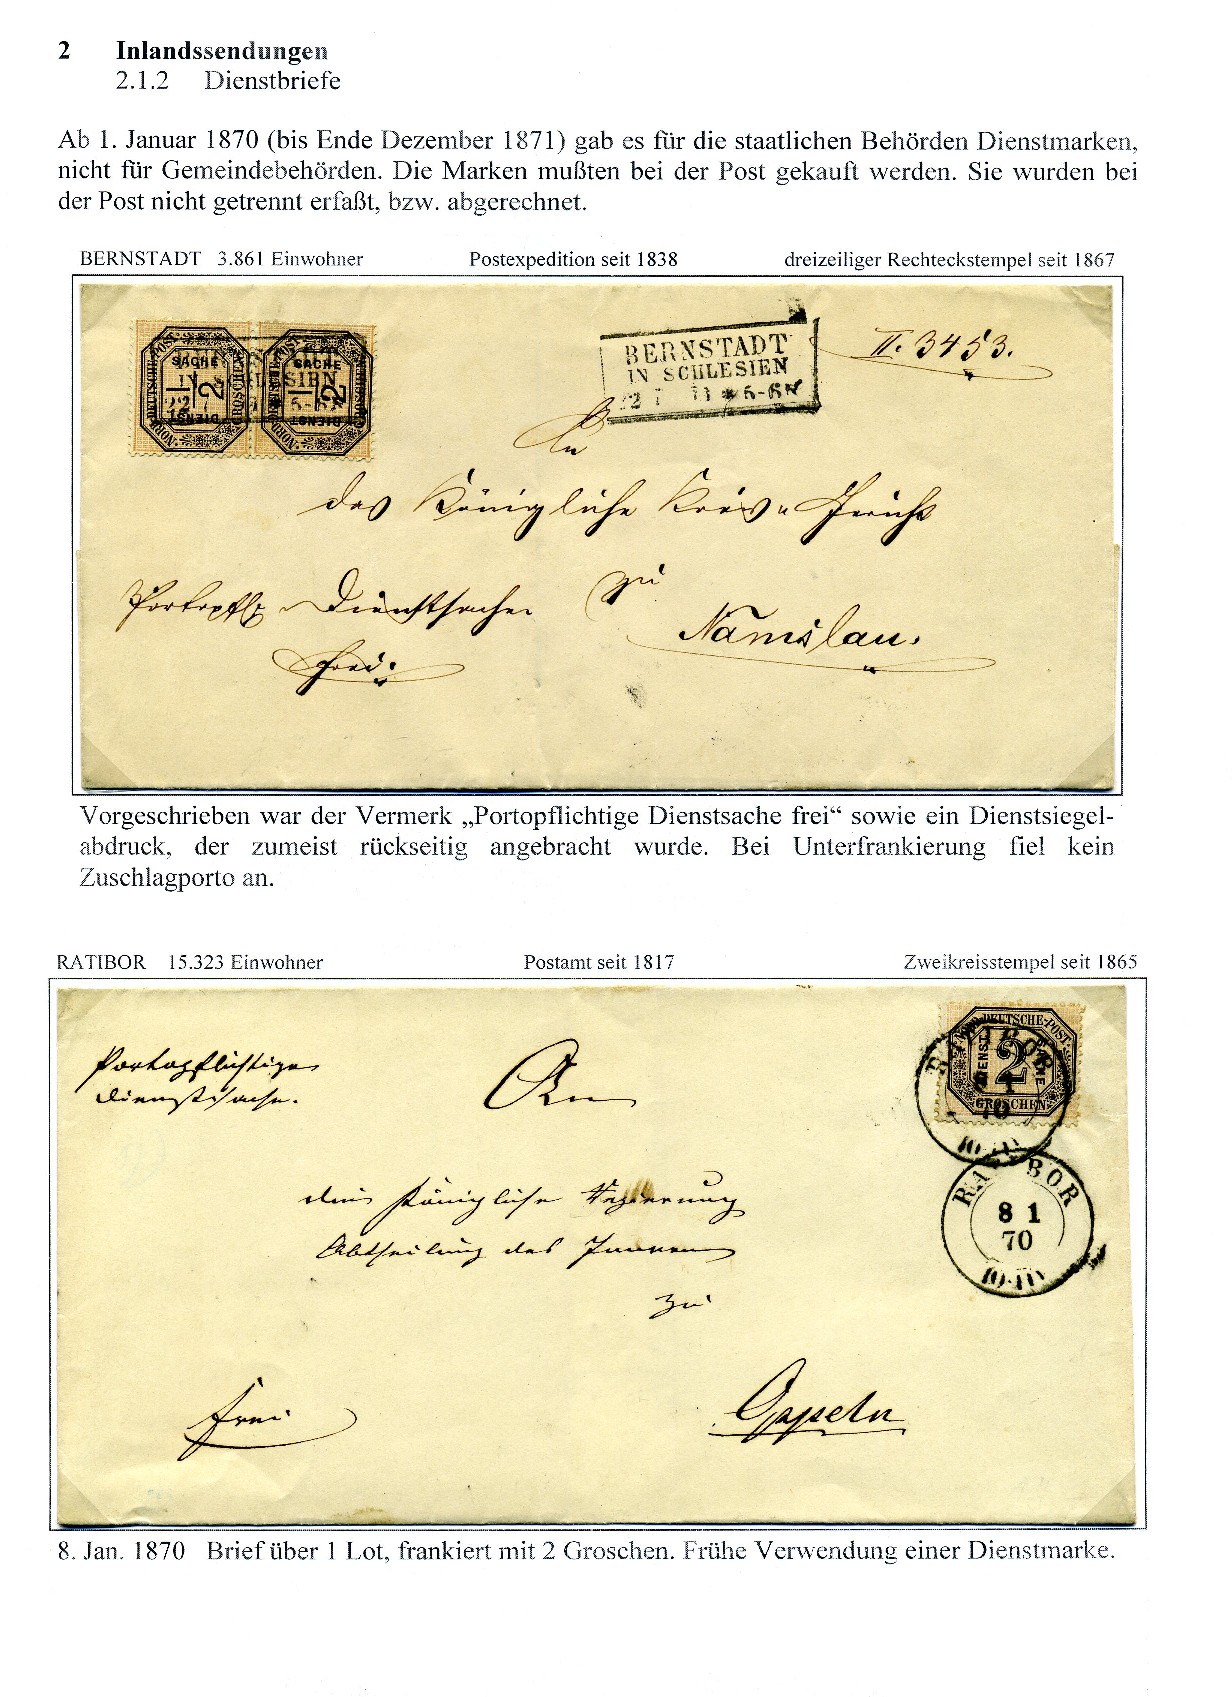 2 Inlandssendungen
2.1.2 Dienstbriefe
Ab 1. Januar 1870 (bis Ende Dezember 1871) gab es für die staatlichen Behörden Dienstmarken,
nicht für Gemeindebehörden. Die Marken mußten bei der Post gekauft werden. Sie wurden bei
der Post nicht getrennt erfaßt, bzw. abgerechnet.
BERNSTADT 3.861 Einwohner Postexpedition seit 1838 dreizeiliger Rechteckstempel seit 1867
BERNSTADT
IN SCHLESIEN
22 7 71 * 5-6N
II. 3453.
An
das Königliche Kreis-Gericht
Portopfl. Dienstsache
zu
Namslau.
frei.
Vorgeschrieben war der Vermerk „Portopflichtige Dienstsache frei“ sowie ein Dienstsiegel-
abdruck, der zumeist rückseitig angebracht wurde. Bei Unterfrankierung fiel kein
Zuschlagporto an.
RATIBOR 15.323 Einwohner Postamt seit 1817 Zweikreisstempel seit 1865
NORDDEUTSCHE-POST
DIENST
2
GROSCHEN
RATIBOR
8 1
70
Portopflichtige
Dienstsache.
An
die Königliche Regierung
Abtheilung des Innern
zu
Oppeln
frei
8. Jan. 1870 Brief über 1 Lot, frankiert mit 2 Groschen. Frühe Verwendung einer Dienstmarke.